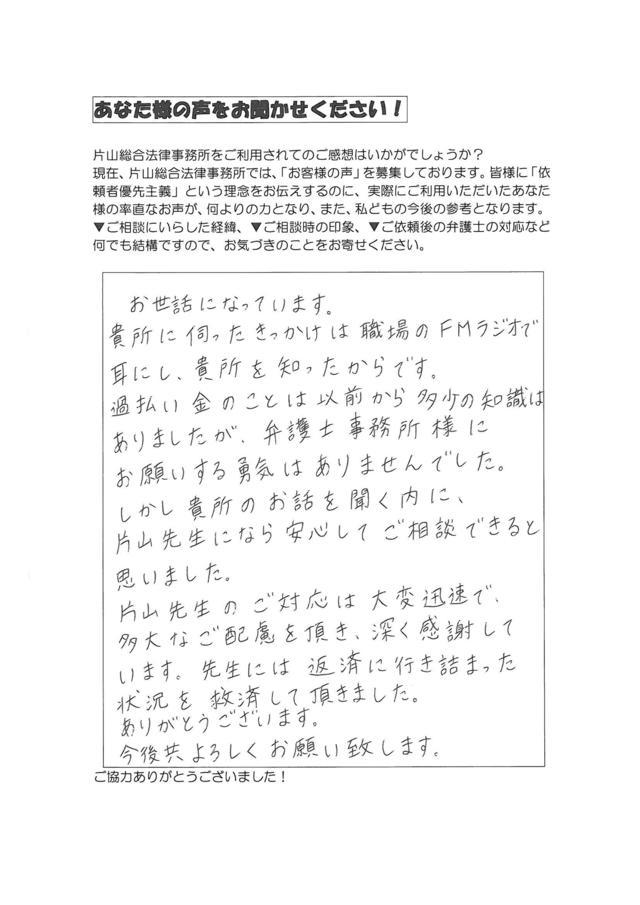 あなた様の声をお聞かせください！
片山総合法律事務所をご利用されてのご感想はいかがでしょうか？
現在、片山総合法律事務所では、「お客様の声」を募集しております。皆様に「依
頼者優先主義」という理念をお伝えするのに、実際にご利用いただいたあなた
様の率直なお声が、何よりの力となり、また、私どもの今後の参考となります。
▼ご相談にいらした経緯、▼ご相談時の印象、▼ご依頼後の弁護士の対応など
何でも結構ですので、お気づきのことをお寄せください。
お世話になっています。
貴所に伺ったきっかけは職場のFMラジオで
耳にし、貴所を知ったからです。
過払い金のことは以前から多少の知識は
ありましたが、弁護士事務所様に
お願いする勇気はありませんでした。
しかし貴所のお話を聞く内に、
片山先生になら安心してご相談できると
思いました。
片山先生のご対応は大変迅速で、
多大なご配慮を頂き、深く感謝して
います。先生には返済に行き詰まった
状況を救済して頂きました。
ありがとうございます。
今後共よろしくお願い致します。
ご協力ありがとうございました！